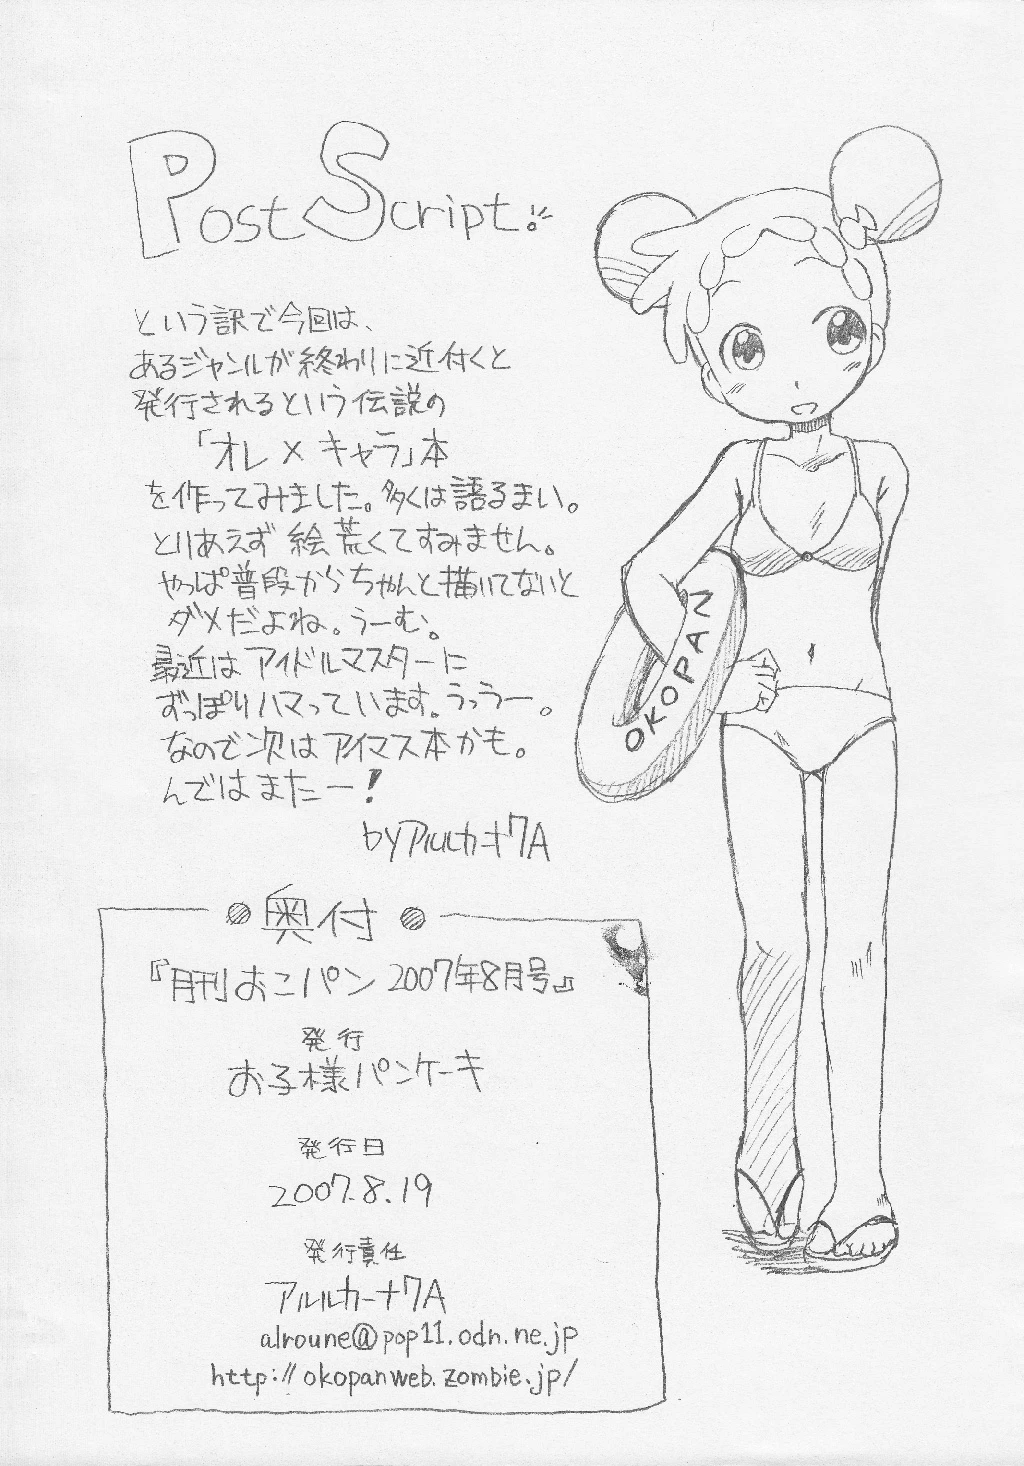 PostScript!
という訳で今回は、
あるジャンルが終わりに近付くと
発行されるという伝説の
「オレ×キャラ」本
を作ってみました。多くは語るまい。
とりあえず絵荒くてすみません。
やっぱ普段からちゃんと描いてないと
ダメだよね。うーむ。
最近はアイドルマスターに
ずっぽりハマっています。うっうー。
なので次はアイマス本かも。
んではまたー!
byアルルカーナ7A
OKOPAN
奥付
『月刊おこパン2007年8月号』
発行
お子様パンケーキ
発行日
2007.8.19
発行責任
アルルカーナ7A
alroune@pop11.odn.ne.jp
http://okopanweb.zombie.jp/